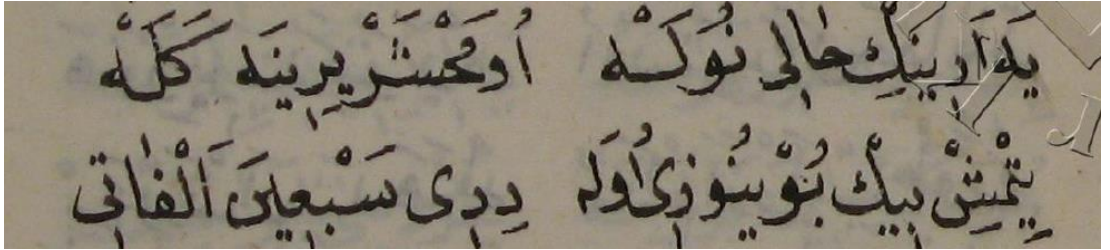 يَه اَرِينِكْ حَالِى نُوكَسْه اُومَحْشَرْ يِرِينَه كَلَه
يِتْمِشْ بِيكْ بُوْينُوزِى اُولَه دِدِى سَبْعِينَ اَلْفَاتِى